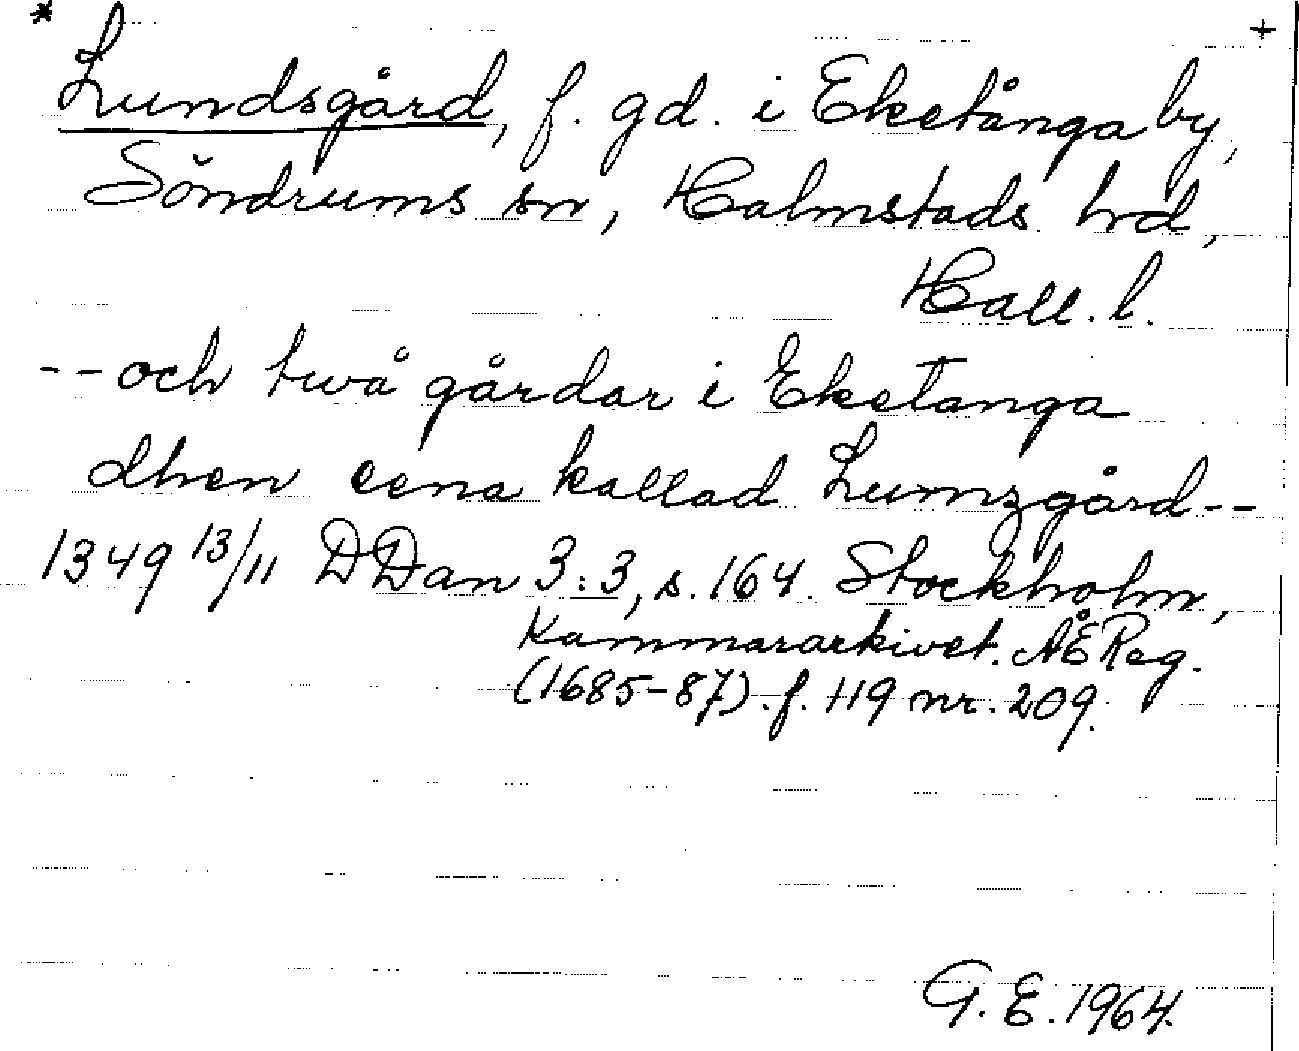 * +
Lundsgård, f. gd. i Eketånga by,
Söndrums sn, Halmstads hd,
Hall. l.
--och twå gårdar i Eketanga
dhen eena kallad Lumzgård--
1349 13/11 DDan 3:3, s. 164. Stockholm,
Kammararkivet. ÄÅReg.
(1685-87). f. 119 nr. 209.
G. E. 1964.